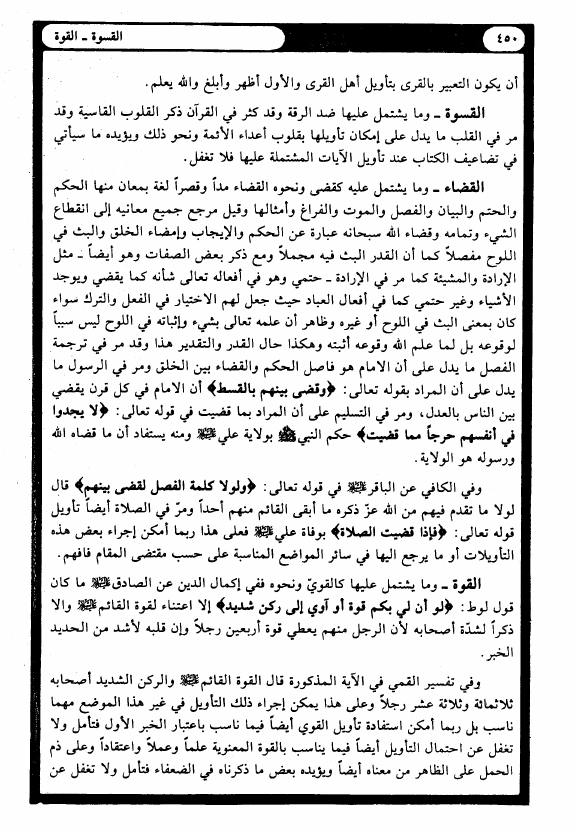 ٤٥٠
القسوة ـ القوة
أن يكون التعبير بالقرى بتأويل أهل القرى والأول أظهر وأبلغ والله يعلم.
القسوة ـ وما يشتمل عليها ضد الرقة وقد كثر في القرآن ذكر القلوب القاسية وقد
مر في القلب ما يدل على إمكان تأويلها بقلوب أعداء الأئمة ونحو ذلك ويؤيده ما سيأتي
في تضاعيف الكتاب عند تأويل الآيات المشتملة عليها فلا تغفل.
القضاء ـ وما يشتمل عليه كقضى ونحوه القضاء مداً وقصراً لغة بمعان منها الحكم
والحتم والبيان والفصل والموت والفراغ وأمثالها وقيل مرجع جميع معانيه إلى انقطاع
الشيء وتمامه وقضاء الله سبحانه عبارة عن الحكم والإيجاب وإمضاء الخلق والبث في
اللوح مفصلاً كما أن القدر البث فيه مجملاً ومع ذكر بعض الصفات وهو أيضاً ـ مثل
الإرادة والمشيئة كما مر في الإرادة ـ حتمي وهو في أفعاله تعالى شأنه كما يقضي ويوجد
الأشياء وغير حتمي كما في أفعال العباد حيث جعل لهم الاختيار في الفعل والترك سواء
كان بمعنى البث في اللوح أو غيره وظاهر أن علمه تعالى بشيء وإثباته في اللوح ليس سبباً
لوقوعه بل لما علم الله وقوعه أثبته وهكذا حال القدر والتقدير هذا وقد مر في ترجمة
الفصل ما يدل على أن الامام هو فاصل الحكم والقضاء بين الخلق ومر في الرسول ما
يدل على أن المراد بقوله تعالى: ﴿وقضى بينهم بالقسط﴾ أن الامام في كل قرن يقضي
بين الناس بالعدل، ومر في التسليم على أن المراد بما قضيت في قوله تعالى: ﴿لا يجدوا
في أنفسهم حرجاً مما قضيت﴾ حكم النبي ﷺ بولاية علي ﷺ ومنه يستفاد أن ما قضاه الله
ورسوله هو الولاية.
وفي الكافي عن الباقر ﷺ في قوله تعالى: ﴿ولولا كلمة الفصل لقضى بينهم﴾ قال
لولا ما تقدم فيهم من الله عزّ ذكره ما أبقى القائم منهم أحداً ومرّ في الصلاة أيضاً تأويل
قوله تعالى: ﴿فإذا قضيت الصلاة﴾ بوفاة علي ﷺ فعلى هذا ربما أمكن إجراء بعض هذه
التأويلات أو ما يرجع اليها في سائر المواضع المناسبة على حسب مقتضى المقام فافهم.
القوة ـ وما يشتمل عليها كالقويّ ونحوه ففي إكمال الدين عن الصادق ﷺ ما كان
قول لوط: ﴿لو أن لي بكم قوة أو آوي إلى ركن شديد﴾ إلا اعتناء لقوة القائم ﷺ والا
ذكراً لشدّة أصحابه لأن الرجل منهم يعطي قوة أربعين رجلاً وإن قلبه لأشد من الحديد
الخبر.
وفي تفسير القمي في الآية المذكورة قال القوة القائم ﷺ والركن الشديد أصحابه
ثلاثمائة وثلاثة عشر رجلاً وعلى هذا يمكن إجراء ذلك التأويل في غير هذا الموضع مهما
ناسب بل ربما أمكن استفادة تأويل القوي أيضاً فيما ناسب باعتبار الخبر الأول فتأمل ولا
تغفل عن احتمال التأويل أيضاً فيما يناسب بالقوة المعنوية علماً وعملاً واعتقاداً وعلى ذم
الحمل على الظاهر من معناه أيضاً ويؤيده بعض ما ذكرناه في الضعفاء فتأمل ولا تغفل عن